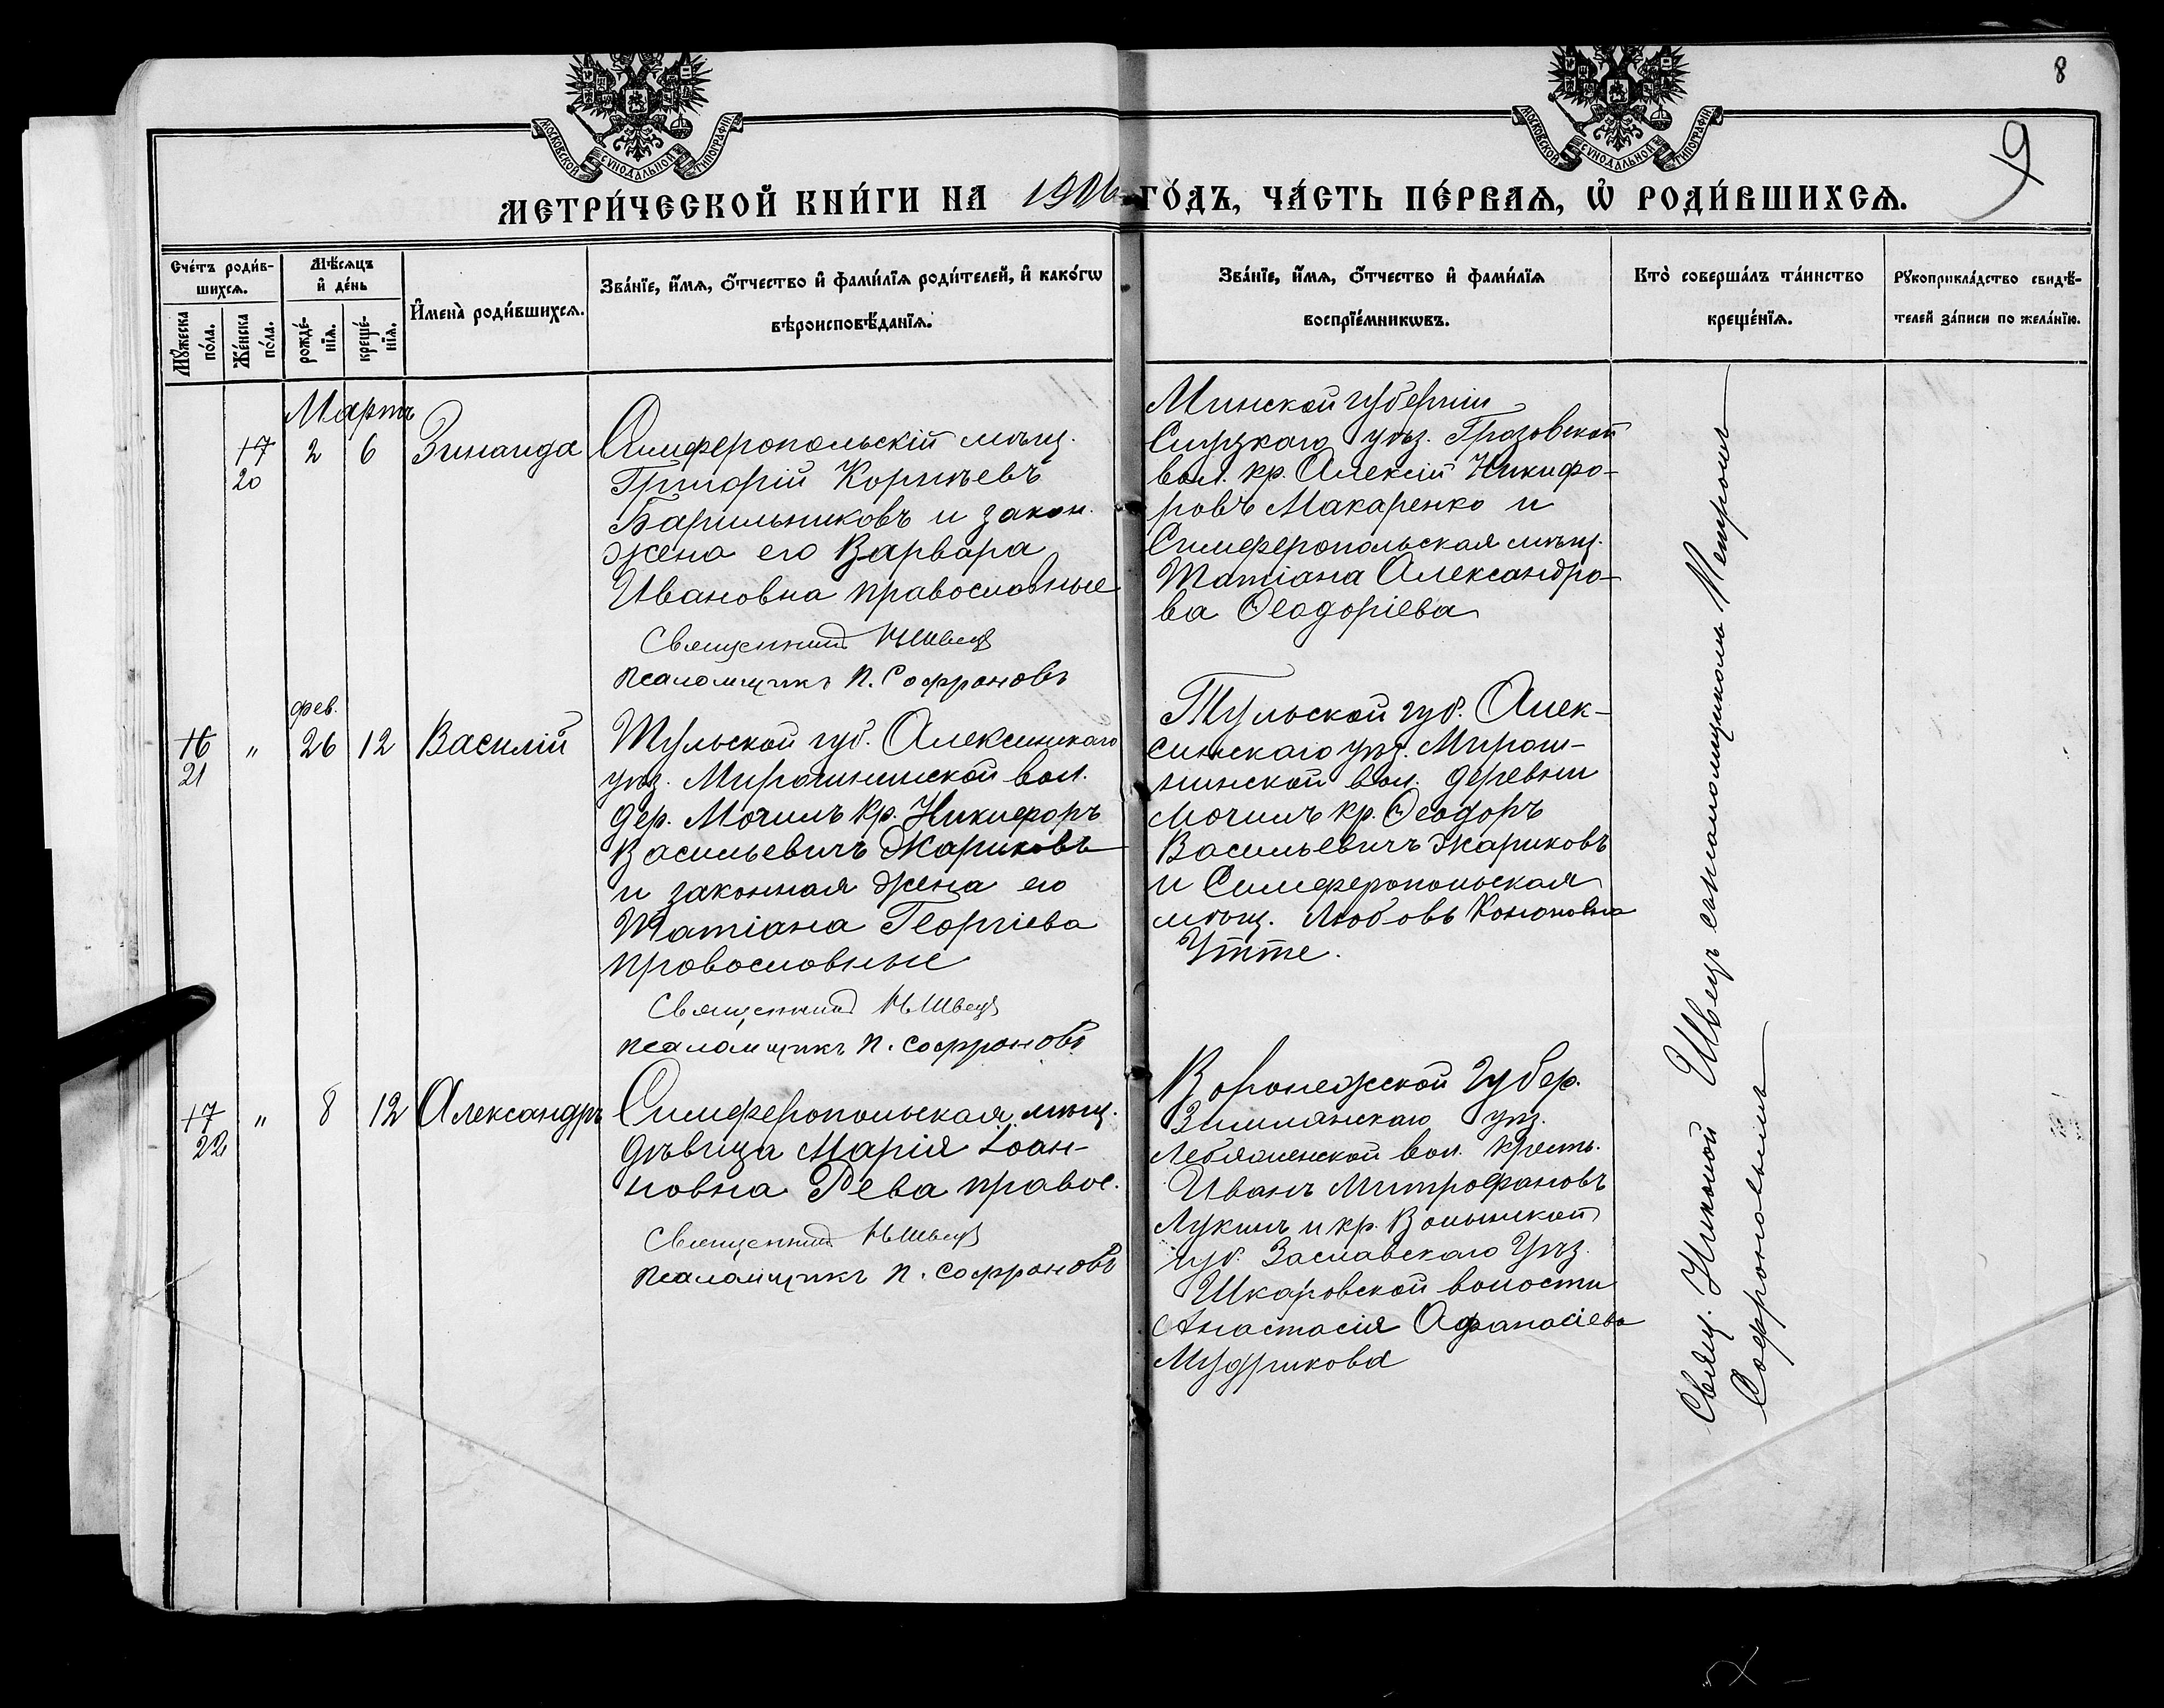 8
9
МОСКОВСКОЙ СѴНОДАЛЬНОЙ ТИПОГРАФІИ
МОСКОВСКОЙ СѴНОДАЛЬНОЙ ТИПОГРАФІИ
МЕТРИ́ЧЕСКОЙ КНИ́ГИ НА 1906 ГО́ДЪ, ЧА́СТЬ ПЕ́РВАѦ, Ѡ҆ РОДИ́ВШИХСѦ.
Сче́тъ роди́в-
шихсѧ.
Мꙋ́жеска по́ла.
Же́нска по́ла.
Мѣ́сѧцъ и҆ де́нь
рожде́-
нїѧ.
креще́-
нїѧ.
И҆мена̀ роди́вшихсѧ.
Зва́нїе, и҆́мѧ, ѻ҆́тчество и҆ фами́лїѧ роди́телей, и҆ како́гѡ
вѣроисповѣ́данїѧ.
Зва́нїе, и҆́мѧ, ѻ҆́тчество и҆ фами́лїѧ
воспрїе́мникѡвъ.
Кто̀ соверша́лъ та́инство
креще́нїѧ.
Рꙋкоприкла́дство свидѣ́-
телей за́писи по жела́нїю.
Мартъ
17 2 6 Зинаида
20
Симферопольскій мѣщ.
Григорій Корнѣевъ
Барильниковъ и закон.
жена его Варвара
Ивановна православные
Священникъ Н. Швецъ
псаломщикъ П. Софроновъ
Минской губерніи
Слуцкаго уѣз. Грозовской
вол. кр. Алексій Никифо-
ровъ Макаренко и
Симферопольская мѣщ.
Татіана Александро-
ва Ѳеодоріева
фев.
16 " 26 12 Василій
21
Тульской губ. Алексинскаго
уѣз. Мирошинской вол.
дер. Мочилъ кр. Никифоръ
Васильевичъ Жариковъ
и законная жена его
Татіана Георгіева
провословные
Священникъ Н. Швецъ
псаломщикъ П. Софроновъ
Тульской губ. Алек-
синскаго уѣз. Мирош-
нинской вол. деревни
Мочилъ кр. Ѳеодоръ
Васильевичъ Жариковъ
и Симферопольская
мѣщ. Любовь Кононовна
17 " 8 12 Александръ
22
Симферопольская мѣщ.
дѣвица Марія Іоан-
новна Рева правос.
Священникъ Н. Швецъ
псаломщикъ П. Софроновъ
Воронежской губер.
уѣз.
вол. кресть.
Иванъ Митрофановъ
Лукинъ и кр. Волынской
губ. Заславскаго Уѣз.
Шкаровской волости
Анастасія Афанасіева
Мудрикова
Свящ. Николай Швецъ съ псаломщикомъ Петромъ
Софроновымъ